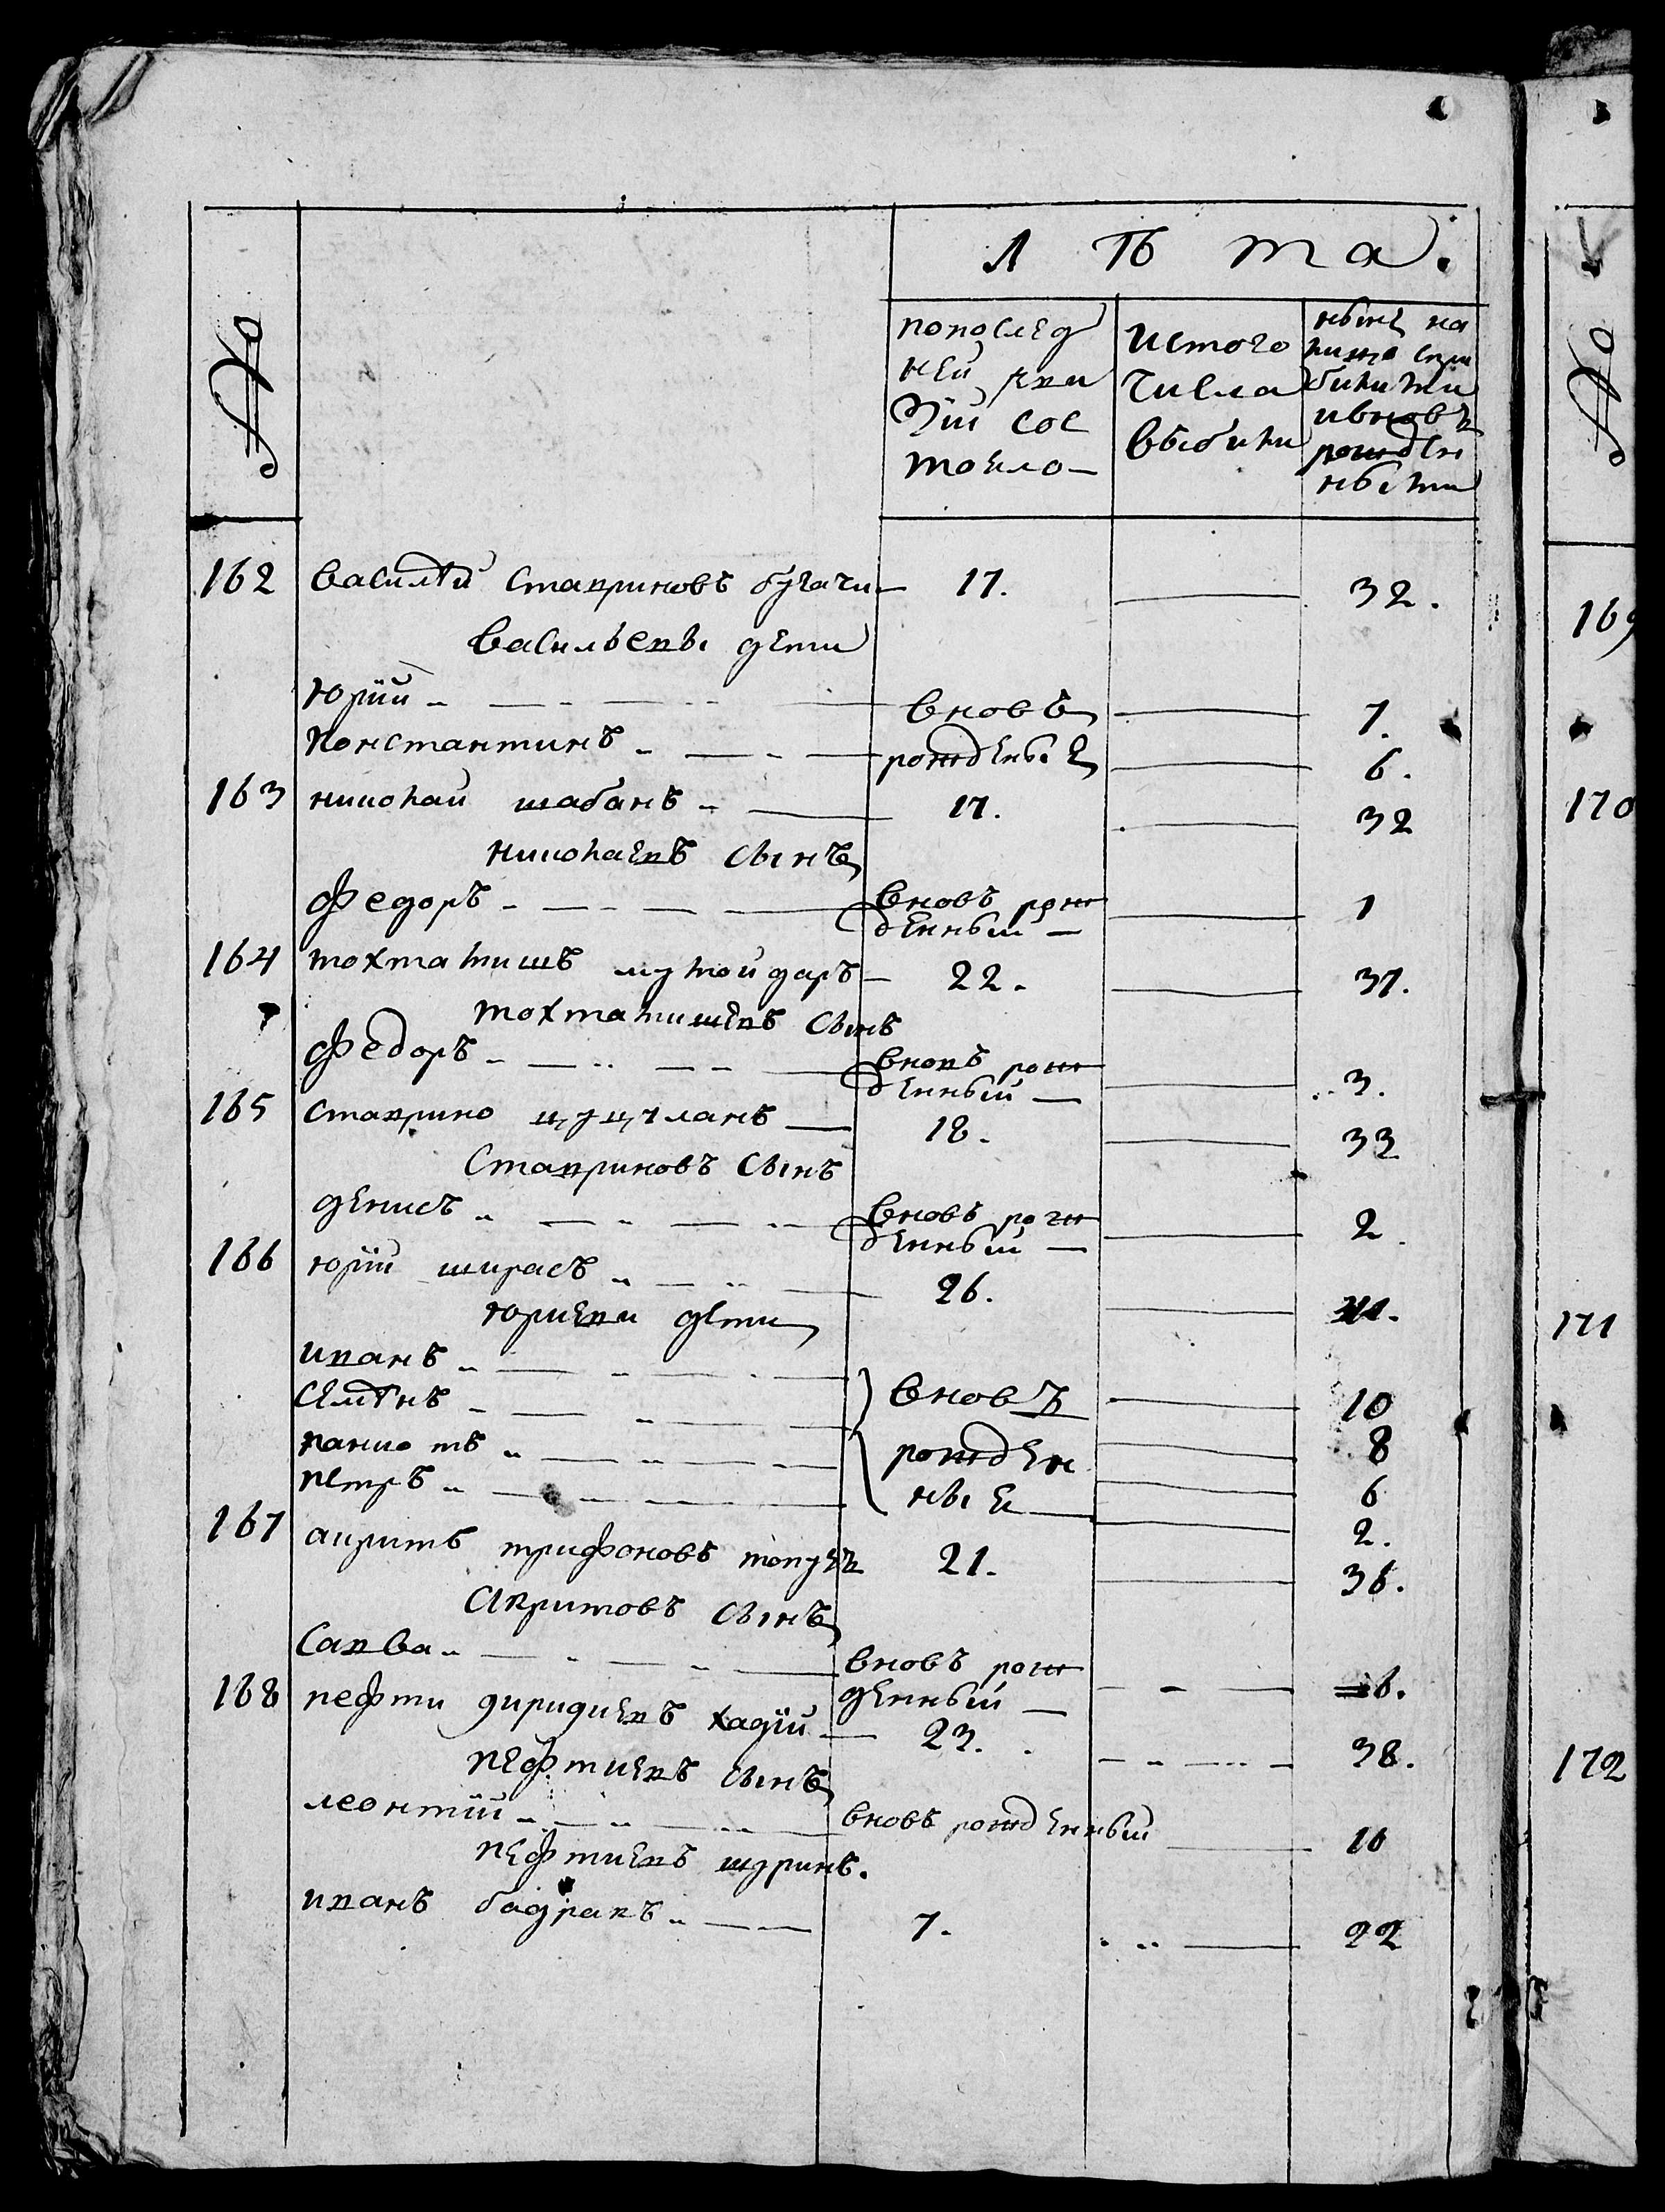 Лѣта.
№
попослед
ней реви
зіи сос
тояло
истого
числа
выбили
нынѣ на
лицо съ при
былыми
ивновь
рожден
ными
162 Василѣй Ставриновъ бугачи 17. 32.
Васильевы дети
Юрій вновь 1.
Константинъ рожденные 6.
163 николай шабанъ 17. 32
николаевъ сынъ
Федоръ вновь рож 1
денный
164 тохтамишъ 22. 37.
тохтамишевъ сынъ
Федоръ вновь рож 3.
денный
165 Ставрино 18. 33
Ставриновъ сынъ
денисъ вновь рож 2
денный
166 юрій ширасъ 26.
юриеви дети
иванъ вновь 10
Семѣнъ 8
паниотъ рожден 6
петръ ные 2.
167 акритъ трифоновъ топузъ 21. 36.
Акритовъ сынъ
Савва вновь рож 6.
денный
168 пефти диридиевъ хаджи 23. 38.
пефтиевъ сынъ
леонтій вновь рожденный 10
пефтиевъ шуринъ.
иванъ бадракъ 7. 22
№
169
170
171
172